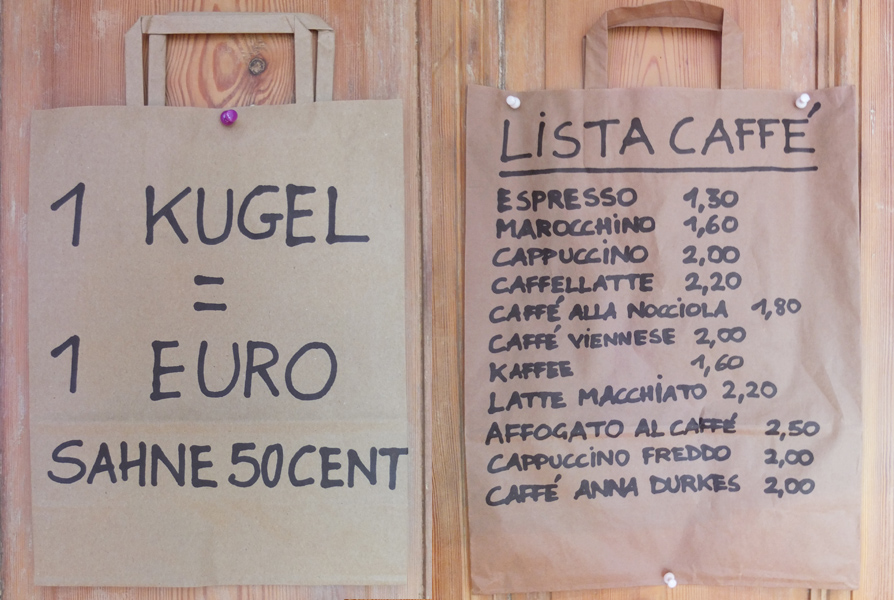 1 KUGEL
=
1 EURO
SAHNE 50 CENT
LISTA CAFFÉ
ESPRESSO 1,30
MAROCCHINO 1,60
CAPPUCCINO 2,00
CAFFELLATTE 2,20
CAFFÉ ALLA NOCCIOLA 1,80
CAFFÉ VIENNESE 2,00
KAFFEE 1,60
LATTE MACCHIATO 2,20
AFFOGATO AL CAFFÉ 2,50
CAPPUCCINO FREDDO 2,00
CAFFÉ ANNA DURKES 2,00